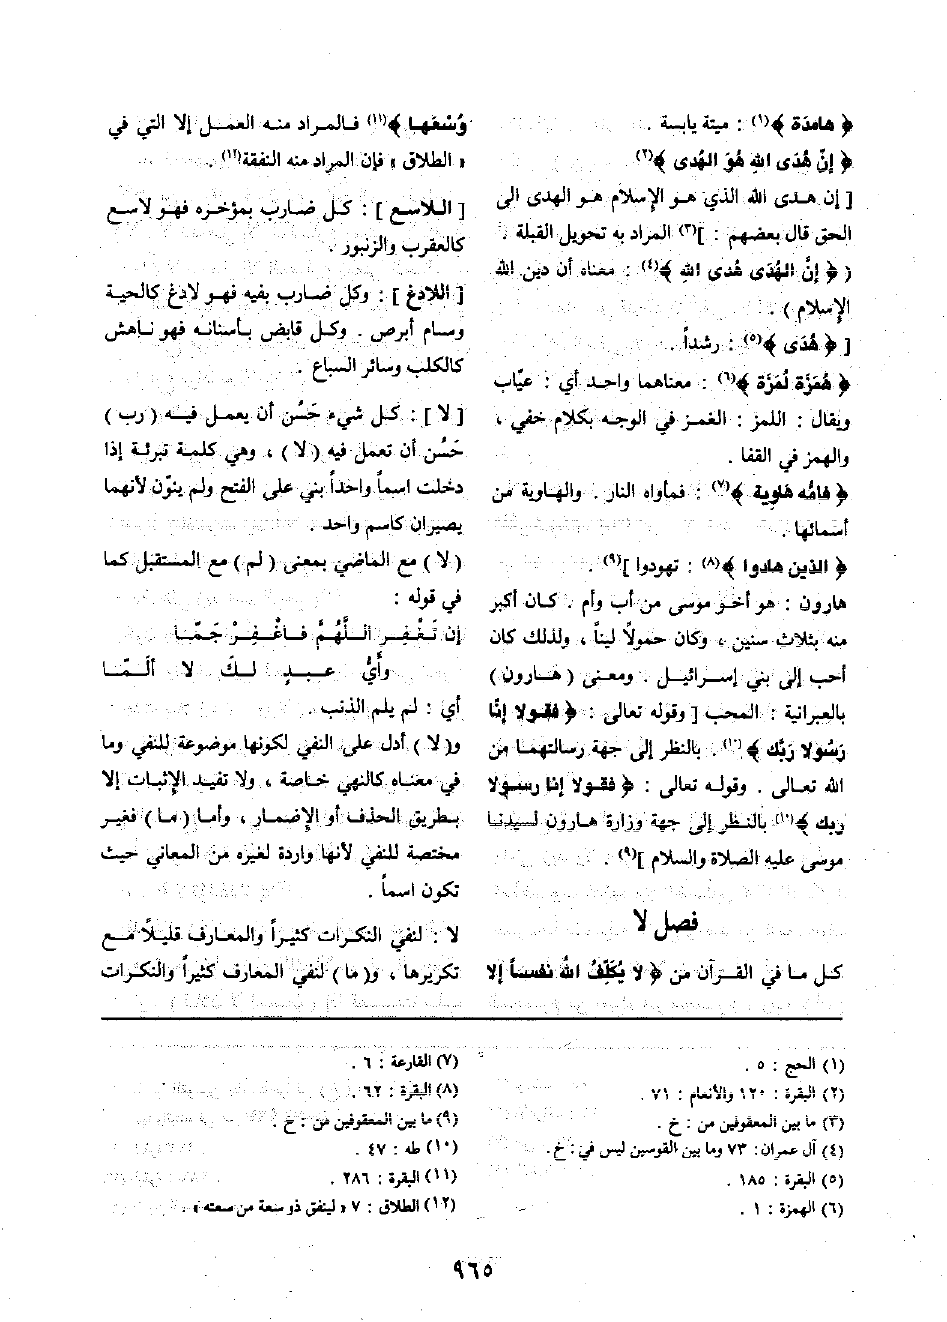 ﴿ هامدة ﴾(١) : ميتة يابسة .
﴿ إنّ هُدَى اللهِ هُوَ الهُدى ﴾(٢)
[ إن هدى الله الذي هو الإسلام هو الهدى الى
الحق قال بعضهم : ](٣) المراد به تحويل القبلة .
( ﴿ إنَّ الهُدَى هُدى اللهِ ﴾(٤) : معناه أن دين الله
الإسلام ) .
[ ﴿ هُدًى ﴾(٥) : رشداً .
﴿ هُمَزَة لُمَزَة ﴾(٦) : معناهما واحد أي : عيّاب
ويقال : اللمز : الغمز في الوجه بكلام خفي ،
والهمز في القفا .
﴿ فامُّه هَاوِية ﴾(٧) : فمأواه النار . والهاوية من
أسمائها .
﴿ الذين هادوا ﴾(٨) : تهودوا ](٩) .
هارون : هو أخو موسى من أب وأم . كان أكبر
منه بثلاث سنين ، وكان حمولاً ليناً ، ولذلك كان
أحب إلى بني إسرائيل . ومعنى ( هارون )
بالعبرانية : المحب [ وقوله تعالى : ﴿ فقولا إنّا
رَسُولا رَبِّك ﴾(١٠) . بالنظر إلى جهة رسالتهما من
الله تعالى . وقوله تعالى : ﴿ فقولا إنا رسولا
ربك ﴾(١٠) بالنظر إلى جهة وزارة هارون لسيدنا
موسى عليه الصلاة والسلام ](٩) .
فصل لا
كل ما في القرآن من ﴿ لا يُكَلِّفُ اللهُ نَفْسَاً إلا
وُسْعَها ﴾(١١) فالمراد منه العمل إلا التي في
« الطلاق » فإن المراد منه النفقة(١٢) .
[ اللاسع ] : كل ضارب بمؤخره فهو لاسع
كالعقرب والزنبور .
[ اللادغ ] : وكل ضارب بفيه فهو لادغ كالحية
وسام أبرص . وكل قابض بأسنانه فهو ناهش
كالكلب وسائر السباع .
[ لا ] : كل شيء حَسُن أن يعمل فيه ( رب )
حَسُن أن تعمل فيه ( لا ) ، وهي كلمة تبرئة إذا
دخلت اسماً واحداً بني على الفتح ولم ينوّن لأنهما
يصيران كاسم واحد .
( لا ) مع الماضي بمعنى ( لم ) مع المستقبل كما
في قوله :
إن تَغْفِر اللَّهُمَّ فاغْفِرْ جَمّا
وأيُّ عبدٍ لكَ لا ألمّا
أي : لم يلم الذنب .
و( لا ) أدل على النفي لكونها موضوعة للنفي وما
في معناه كالنهي خاصة ، ولا تفيد الإثبات إلا
بطريق الحذف أو الإضمار ، وأما ( ما ) فغير
مختصة للنفي لأنها واردة لغيره من المعاني حيث
تكون اسماً .
لا : لنفي النكرات كثيراً والمعارف قليلاً مع
تكريرها ، و( ما ) لنفي المعارف كثيراً والنكرات
(١) الحج : ٥ .
(٢) البقرة : ١٢٠ والأنعام : ٧١ .
(٣) ما بين المعقوفين من : خ .
(٤) آل عمران: ٧٣ وما بين القوسين ليس في : خ.
(٥) البقرة : ١٨٥ .
(٦) الهمزة : ١ .
(٧) القارعة : ٦ .
(٨) البقرة : ٦٢ .
(٩) ما بين المعقوفين من : خ .
(١٠) طه : ٤٧ .
(١١) البقرة : ٢٨٦ .
(١٢) الطلاق : ٧ « لينفق ذو سعة من سعته » .
٩٦٥